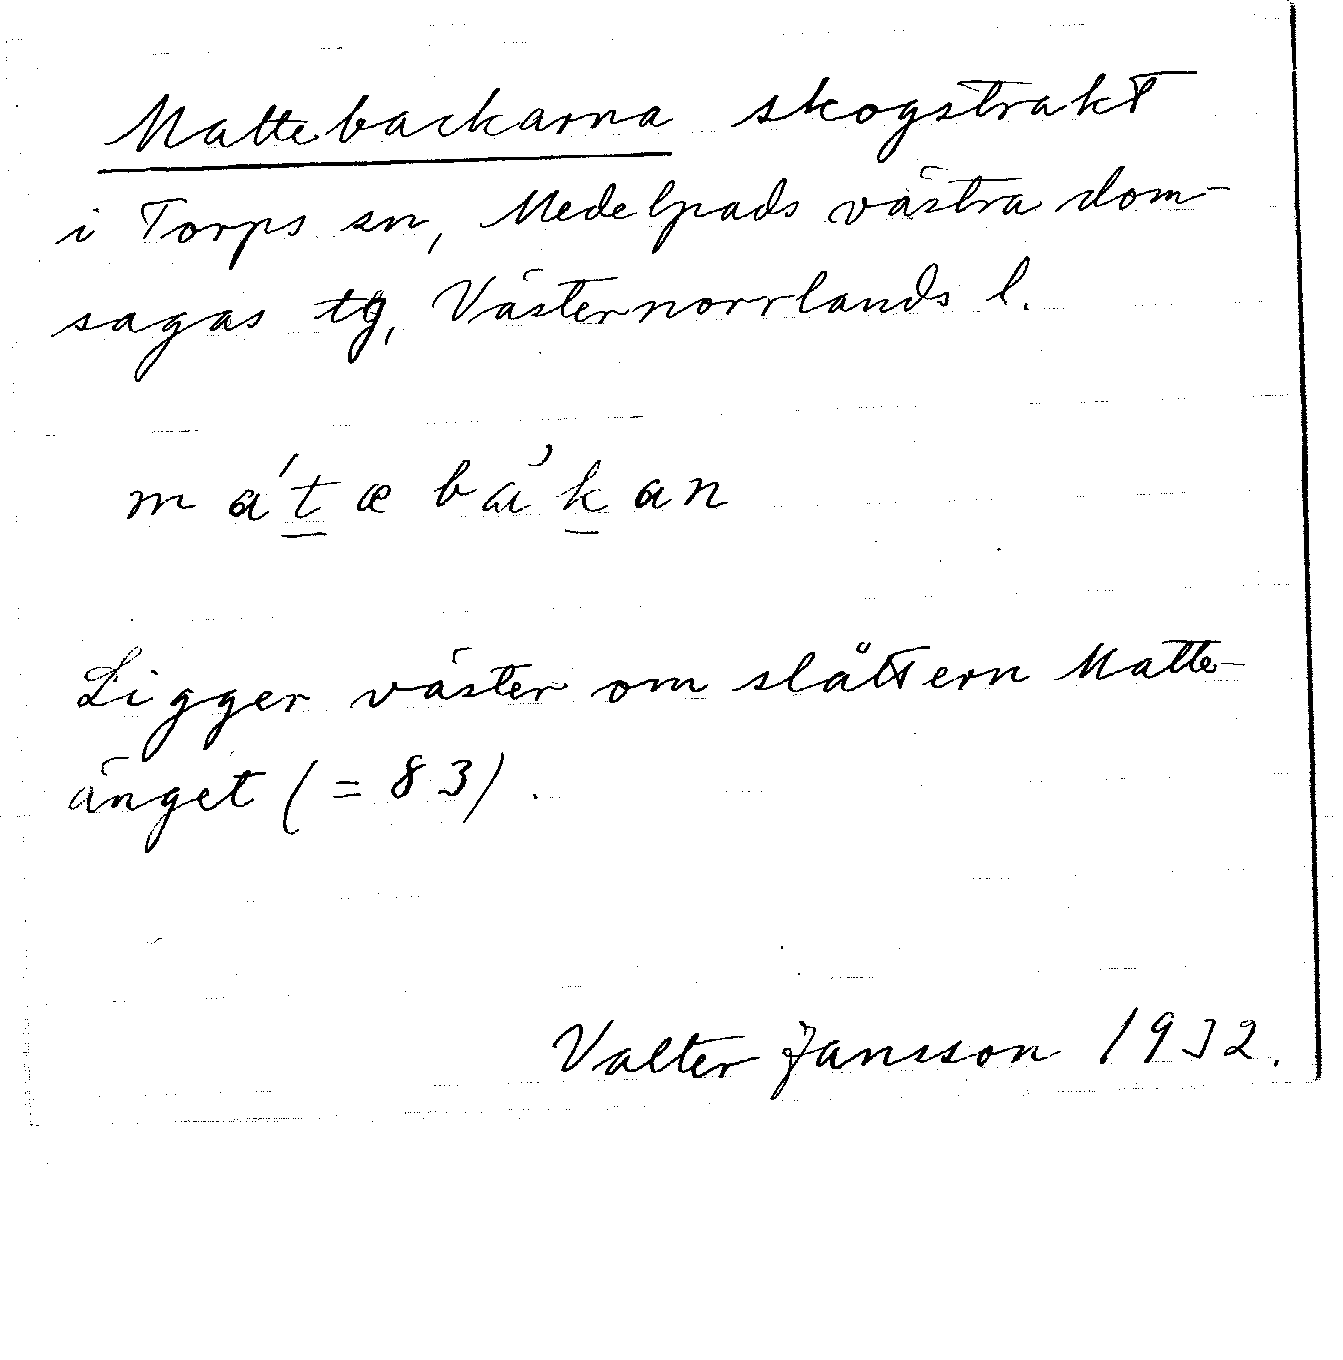 Mattebackarna skogstrakt
i Torps sn, Medelpads västra dom-
sagas tg, Västernorrlands l.
mátæbàkan
Ligger väster om slåttern Matte-
änget (= 83).
Valter Jansson 1932.